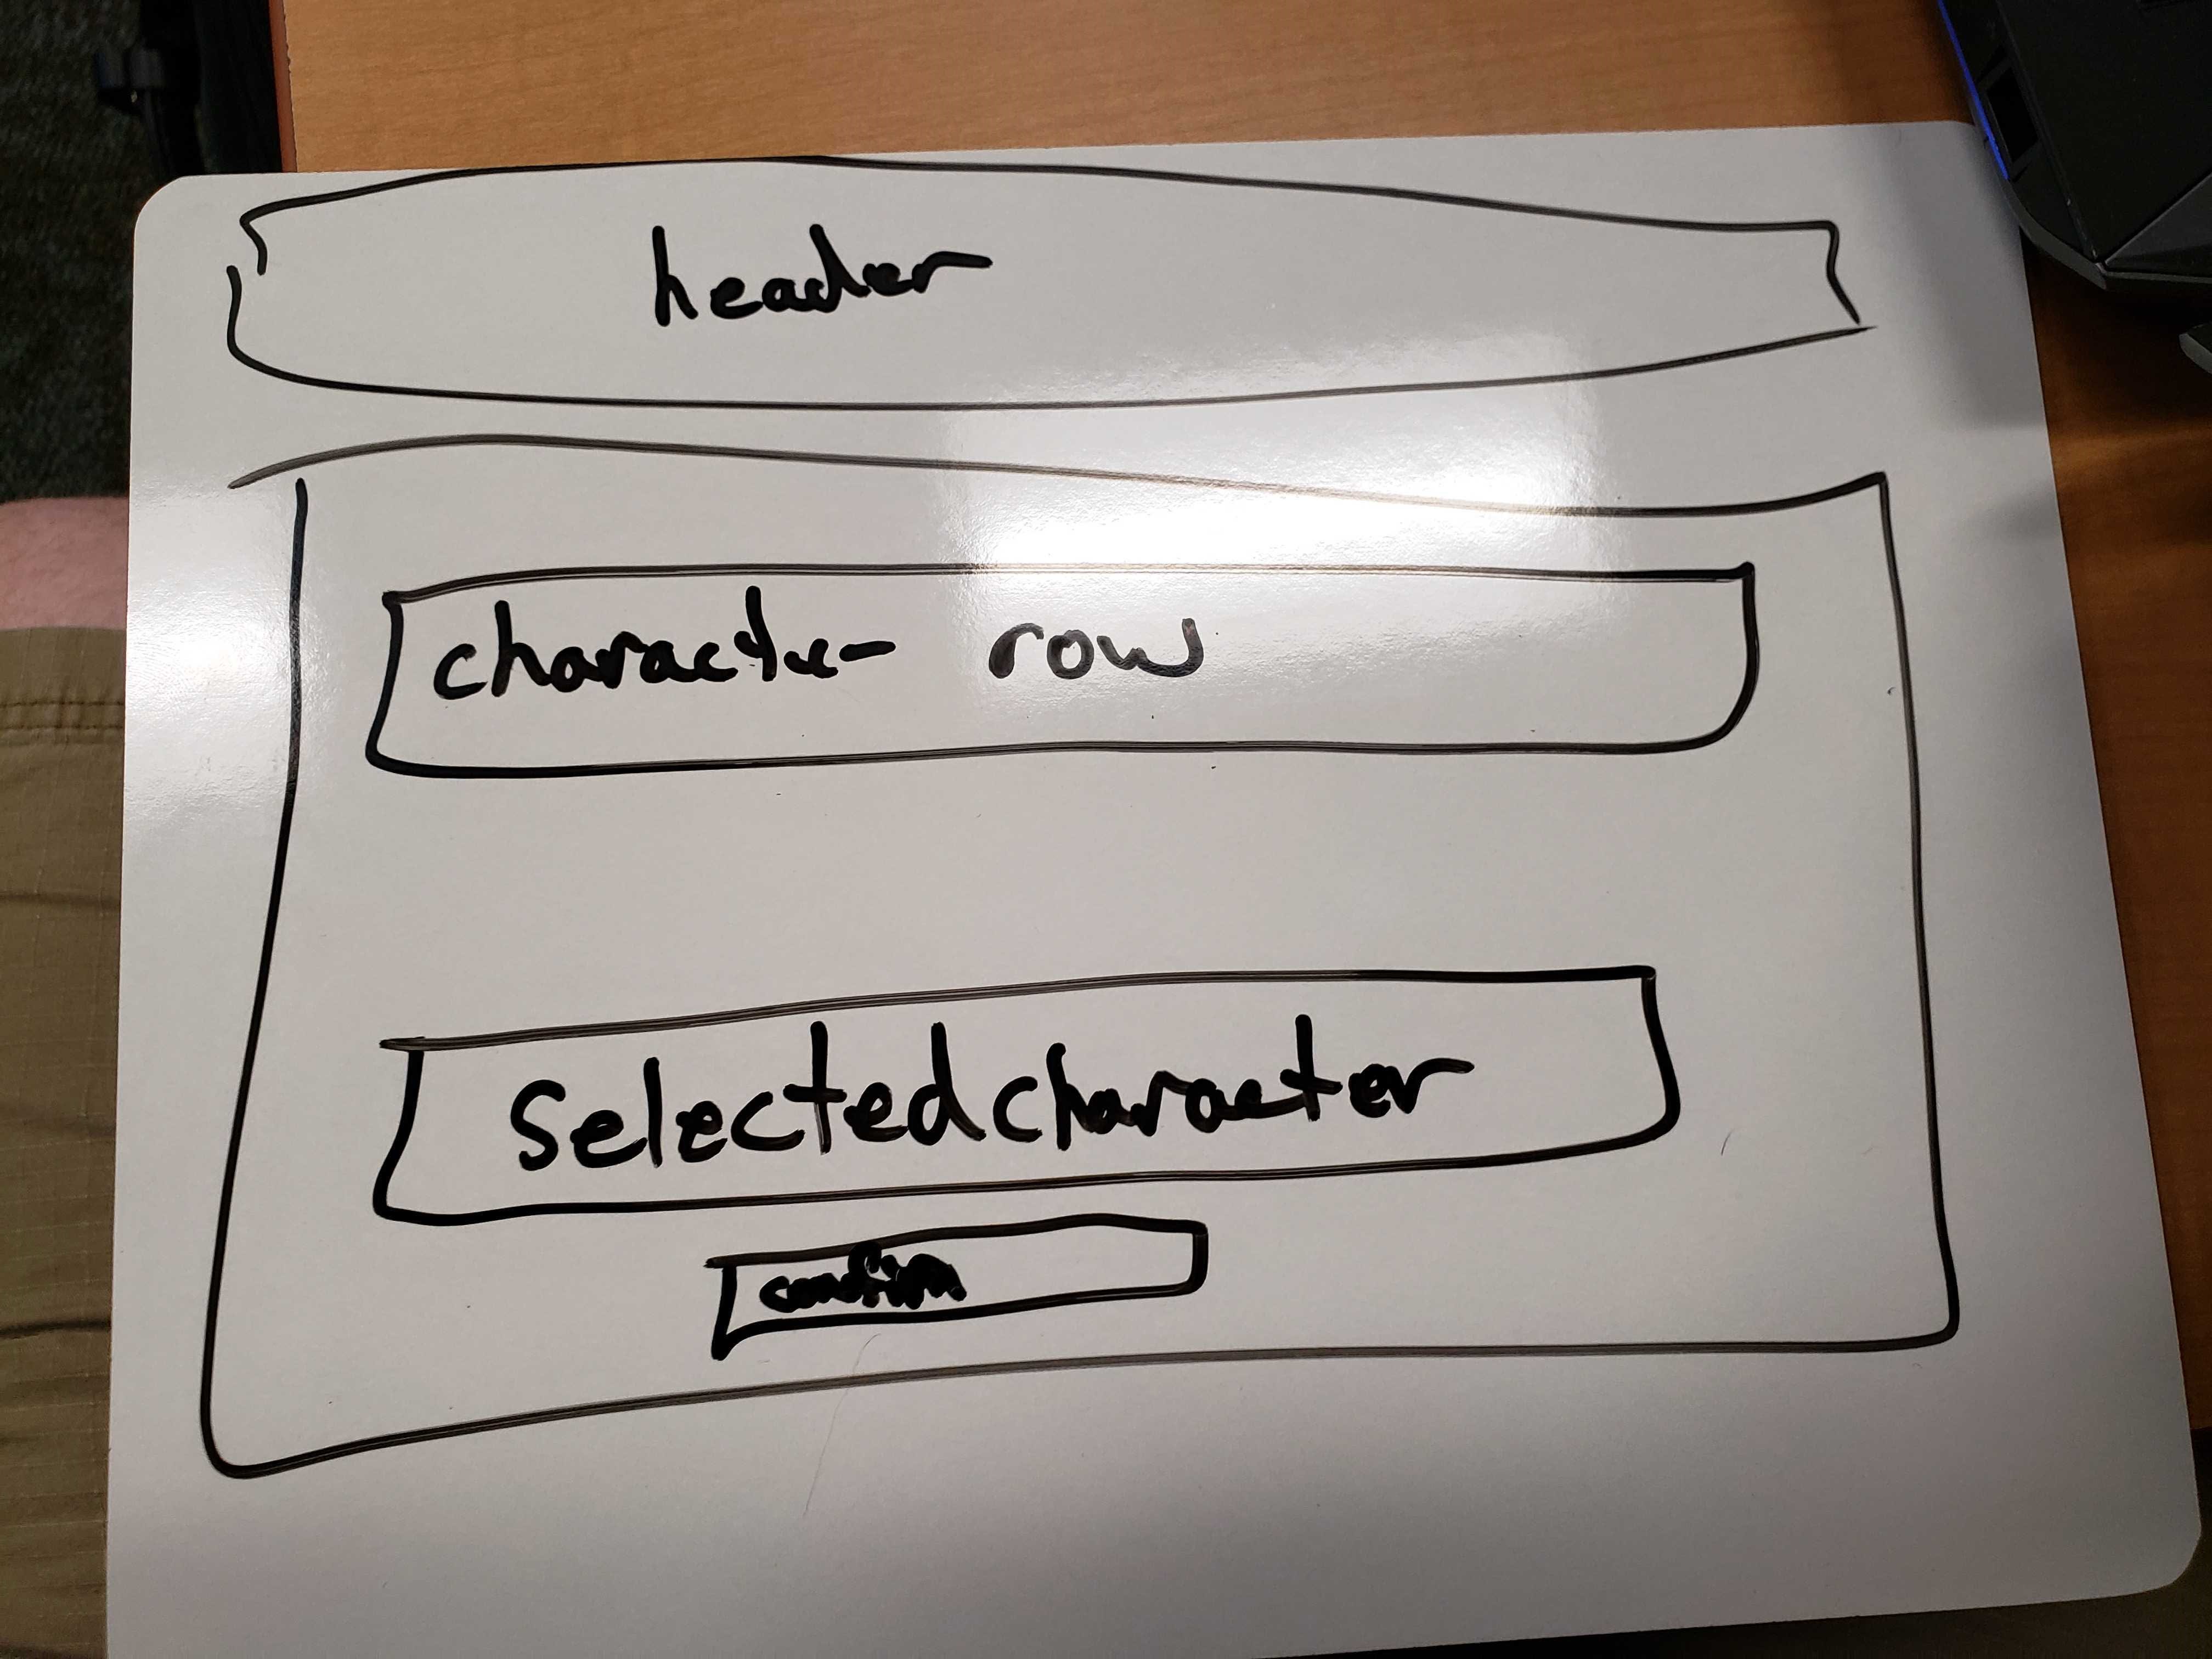 header
character row
selected character
confirm